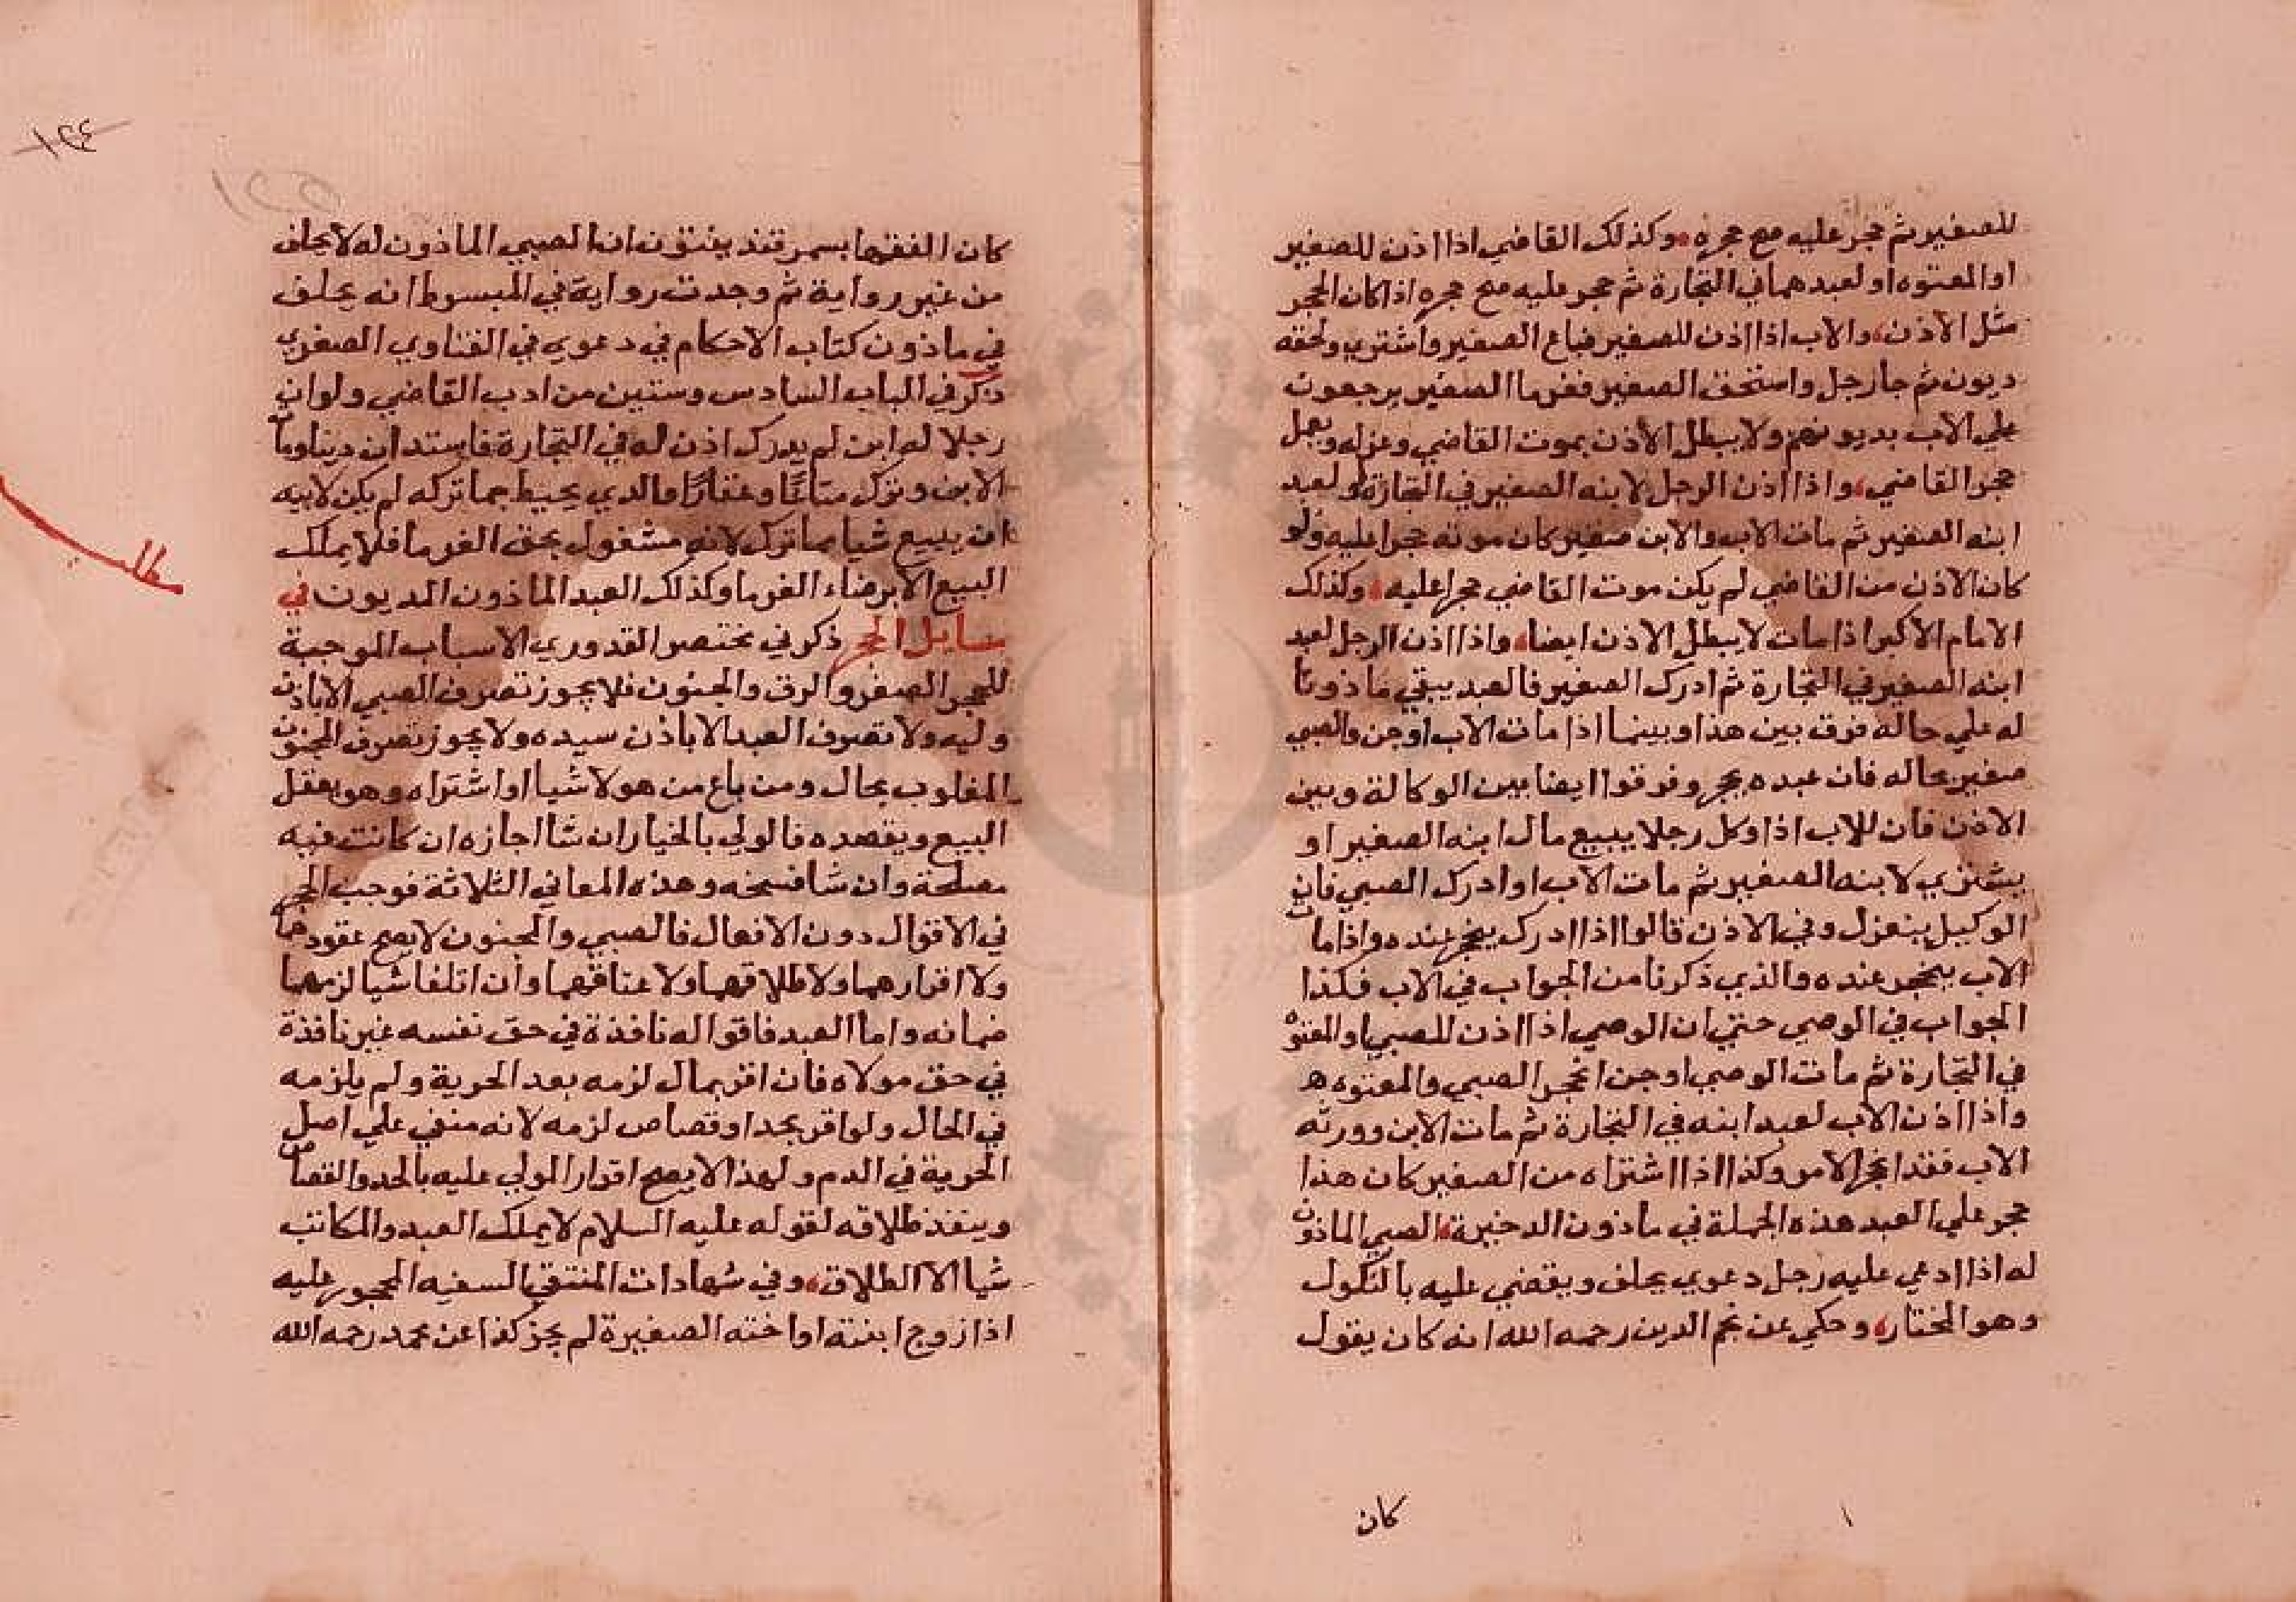 للصغير ثم حجر عليه صح حجره وكذلك القاضي اذا اذن للصغير
او المعتوه او لعبدهما في التجارة ثم حجر عليه صح حجره اذا كان الحجر
مثل الاذن والاب اذا اذن للصغير فباع الصغير واشتري ولحقه
ديون ثم جا رجل واستحق الصغير فغرما الصغير يرجعون
علي الاب بديونهم ولا يبطل الاذن بموت القاضي وعزله
حجر القاضي واذا اذن الرجل لابنه الصغير في التجارة او لعبد
ابنه الصغير ثم مات الاب والابن صغير كان موته حجرا عليه ولو
كان الاذن من القاضي لم يكن موت القاضي حجرا عليه وكذلك
الامام الاكبر اذا مات لا يبطل الاذن ايضا واذا اذن الرجل لعبد
ابنه الصغير في التجارة ثم ادرك الصغير فالعبد يبقي ماذونا
له علي حاله فرق بين هذا وبينما اذا مات الاب او جن والصبي
صغير بحاله فان عبده يحجر وفرقوا ايضا بين الوكالة وبين
الاذن فان للاب اذا وكل رجلا يبيع مال ابنه الصغير او
يشتري لابنه الصغير ثم مات الاب او ادرك الصبي فان
الوكيل ينعزل وفي الاذن قالوا اذا ادرك ينحجر عنده واذا مات
الاب ينحجر عنده والذي ذكرنا من الجواب في الاب فكذا
الجواب في الوصي حتي ان الوصي اذا اذن للصبي او المعتوه
في التجارة ثم مات الوصي او جن انحجر الصبي والمعتوه
واذا اذن الاب لعبد ابنه في التجارة ثم مات الابن وورثه
الاب فقد انحجر الامر وكذا اذا اشتراه من الصغير كان هذا
حجر علي العبد هذه الجملة في ماذون الدخيرة الصبي الماذون
له اذا ادعي عليه رجل دعوي يحلف ويقضي عليه بالنكول
وهو المختار وحكي عن نجم الدين رحمه الله انه كان يقول
كان
١٢٤
مطلب
كان الفقها بسمرقند يفتون ان الصبي الماذون له لا يحلف
من غير رواية ثم وجدت رواية في المبسوط انه يحلف
في ماذون كتاب الاحكام في دعوي في الفتاوي الصغري
ذكر في الباب السادس وستين من ادب القاضي ولو ان
رجلا له ابن لم يدرك اذن له في التجارة فاستدان دينا ومات
الابن وترك متاعا وعقارا والدي يحيط بما تركه لم يكن لابيه
ان يبيع شيا مما ترك لانه مشغول بحق الغرما فلا يملك
البيع الا برضاء الغرما وكذلك العبد الماذون المديون في
مسايل الحجر ذكر في مختصر القدوري الاسباب الموجبة
للحجر الصغر والرق والجنون فلا يجوز تصرف الصبي الا باذن
وليه ولا تصرف العبد الا باذن سيده ولا يجوز تصرف المجنون
المغلوب بحال ومن باع من هولا شيا او اشتراه وهو يعقل
البيع ويقصده فالولي بالخيار ان شا اجازه ان كانت فيه
مصلحة وان شا فسخه وهذه المعاني الثلاثة فوجب الحجر
في الاقوال دون الافعال فالصبي والمجنون لا يصح عقودهما
ولا اقرارهما ولا طلاقهما ولا عتاقهما وان اتلفا شيا لزمهما
ضمانه واما العبد فاقواله نافذة في حق نفسه غير نافذة
في حق مولاه فان اقر بمال لزمه بعد الحرية ولم يلزمه
في الحال ولو اقر بحد او قصاص لزمه لانه منفي علي اصل
الحرية في الدم ولهذا لا يصح اقرار المولي عليه بالحد والقصاص
وينفذ طلاقه لقوله عليه السلام لا يملك العبد والمكاتب
شيا الا الطلاق وفي شهادات المنتقي السفيه المحجور عليه
اذا زوج ابنته او اخته الصغيرة لم يجز كذا عن محمد رحمه الله